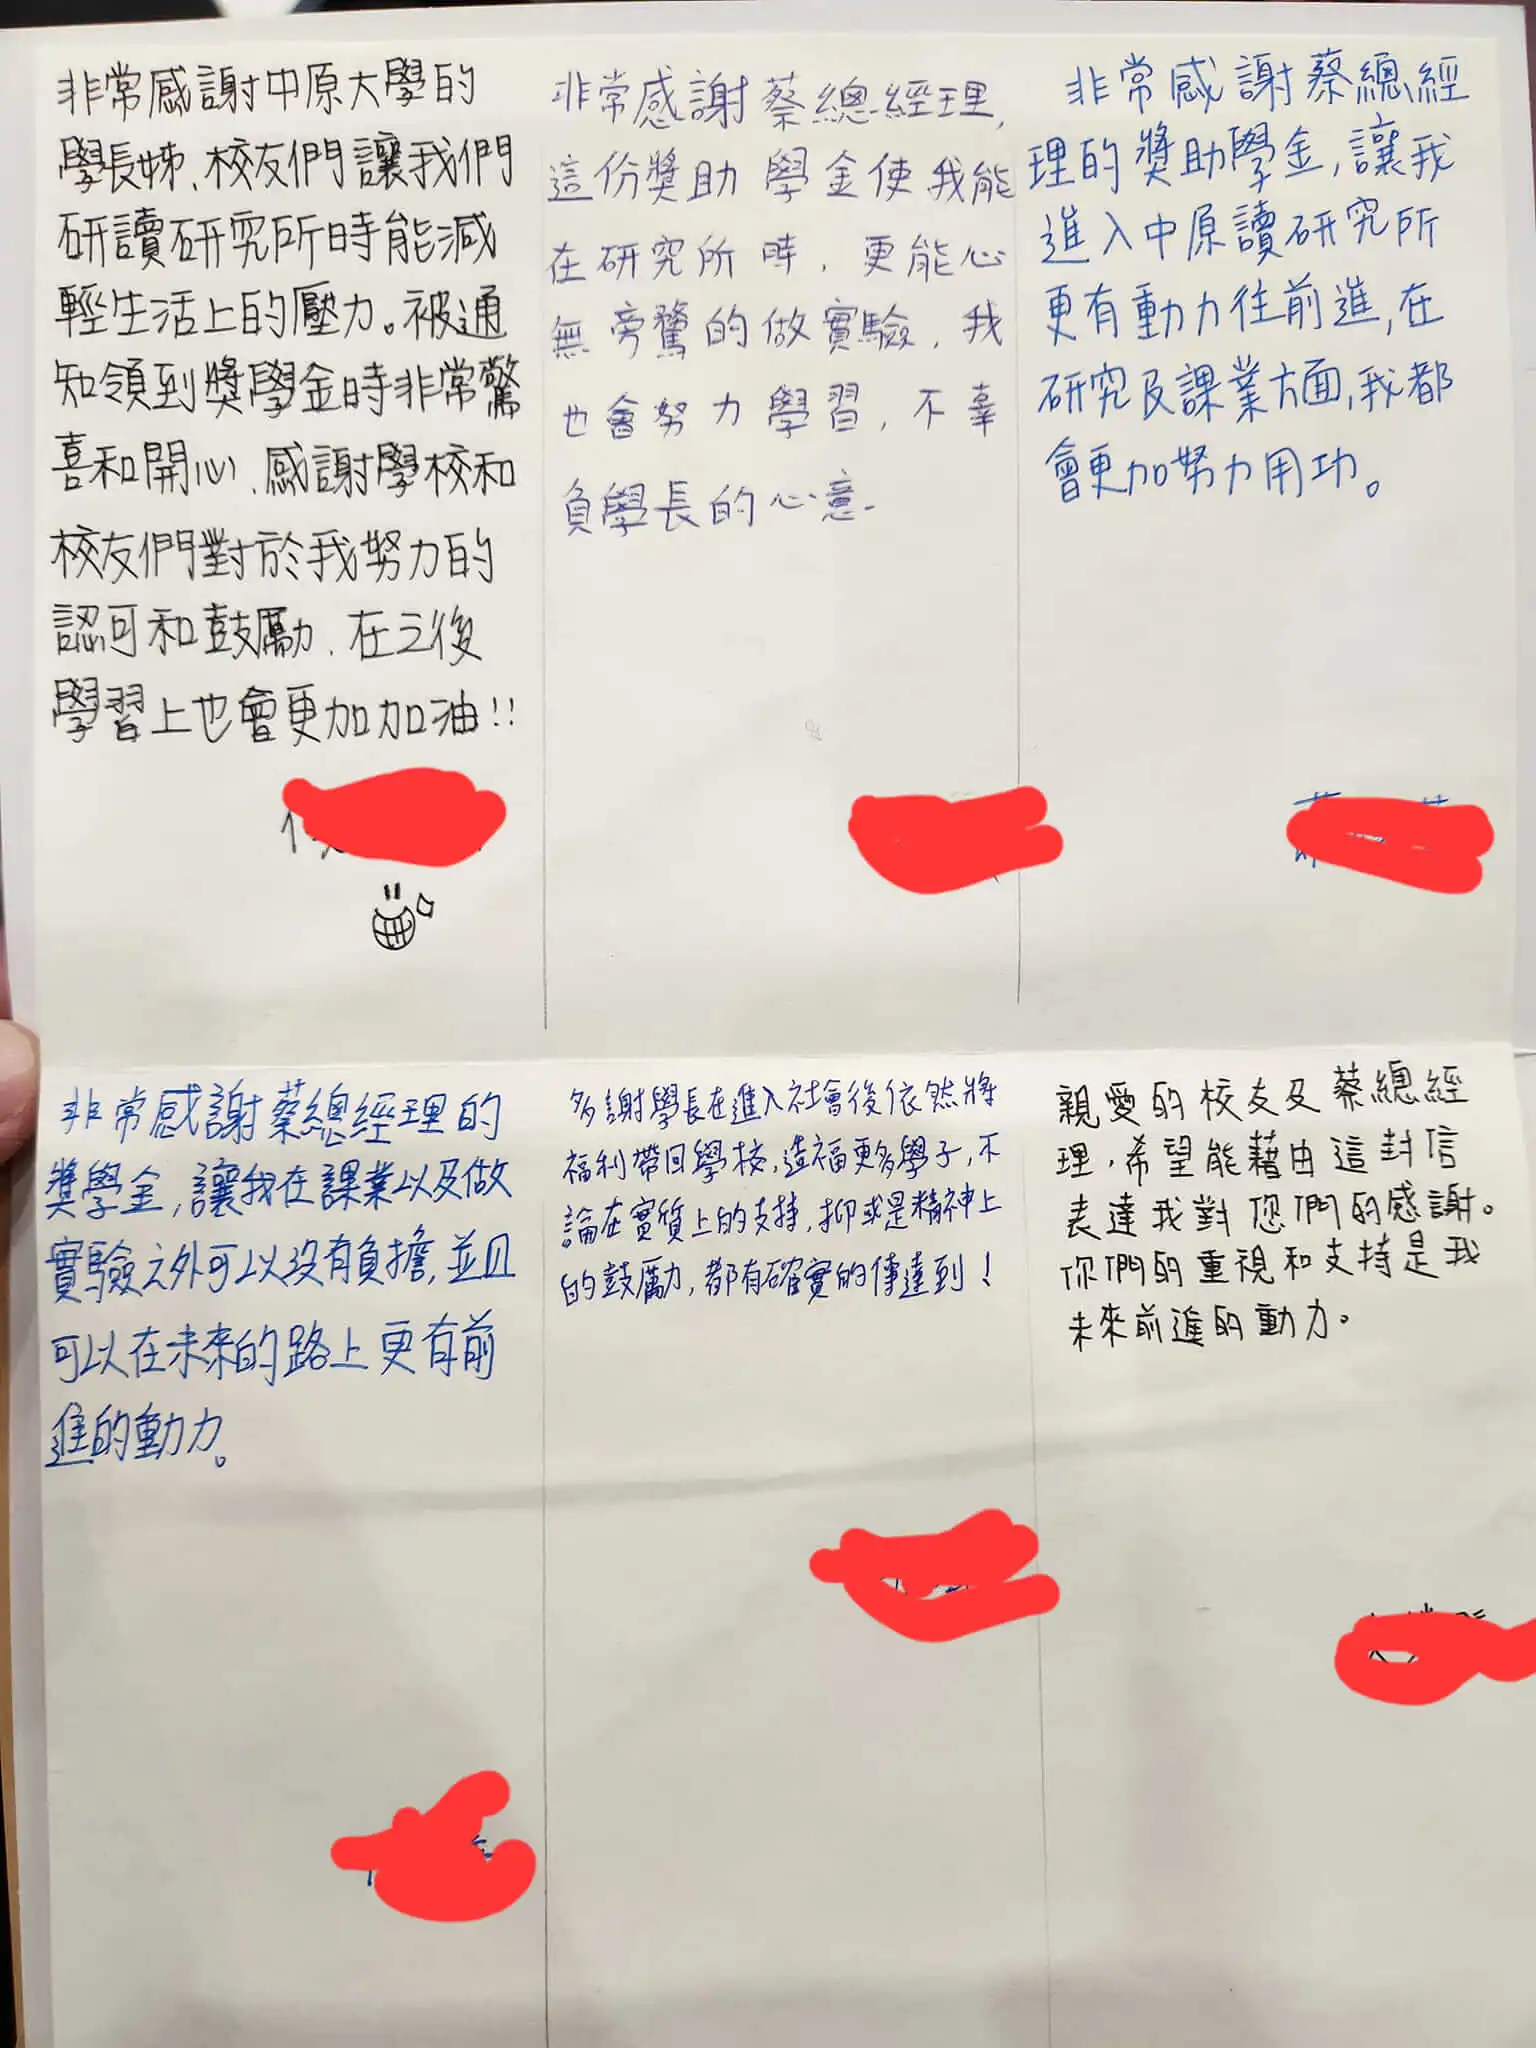 非常感謝中原大學的
學長姊、校友們讓我們
研讀研究所時能減
輕生活上的壓力。被通
知領到獎學金時非常驚
喜和開心、感謝學校和
校友們對於我努力的
認可和鼓勵、在之後
學習上也會更加加油!!
非常感謝蔡總經理,
這份獎助學金使我能
在研究所時,更能心
無旁騖的做實驗,我
也會努力學習,不辜
負學長的心意.
非常感謝蔡總經
理的獎助學金,讓我
進入中原讀研究所
更有動力往前進,在
研究及課業方面,我都
會更加努力用功。
非常感謝蔡總經理的
獎學金,讓我在課業以及做
實驗之外可以沒有負擔,並且
可以在未來的路上更有前
進的動力。
多謝學長在進入社會後依然將
福利帶回學校,造福更多學子,不
論在實質上的支持,抑或是精神上
的鼓勵,都有確實的傳達到!
親愛的校友及蔡總經
理,希望能藉由這封信
表達我對您們的感謝。
你們的重視和支持是我
未來前進的動力。